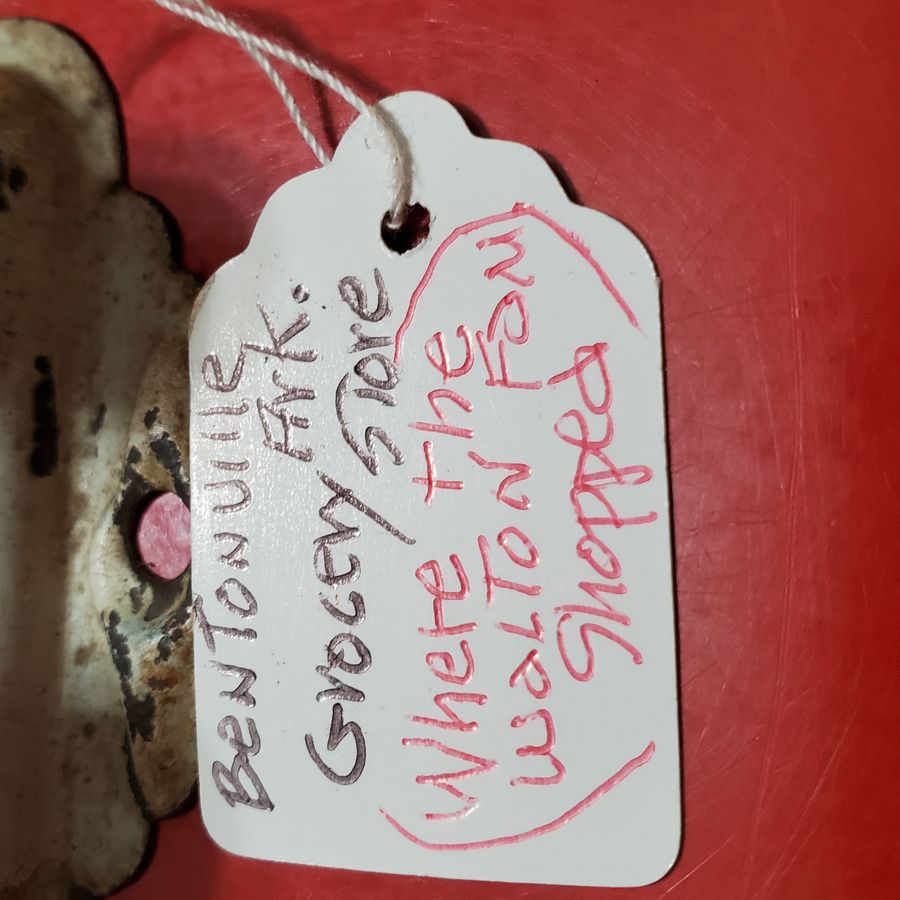 BenTonville
Ark.
Grocery Store
(Where the
Walton Fam
Shopped)